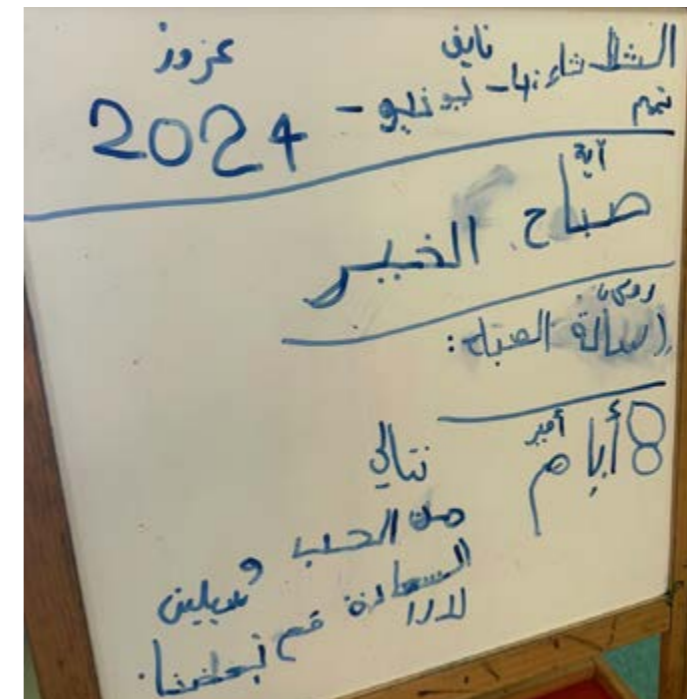 عزوز نايف
الثلاثاء - 4 - يونيو - 2024
تيم
آية
صباح الخير
رسالة الصباح:
أمير
8 أيام
نتالي
من الحب و سيلين
السعادة مع بعضنا.
لارا